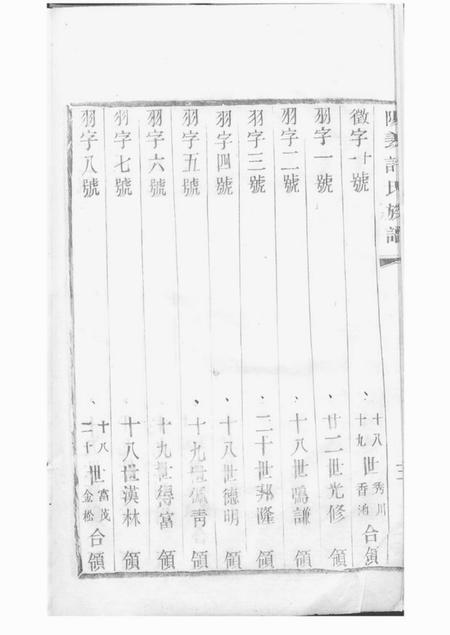 義許氏族譜
徵字十一號 十八世秀川 十九世香泊 合領
羽字一號 廿二世光修 領
羽字二號 十八世鳴謙 領
羽字三號 二十世邦隆 領
羽字四號 十八世德明 領
羽字五號 十九世 青 領
羽字六號 十九世得富 領
羽字七號 十八世漢林 領
羽字八號 十八世富茂 二十世金松 合領